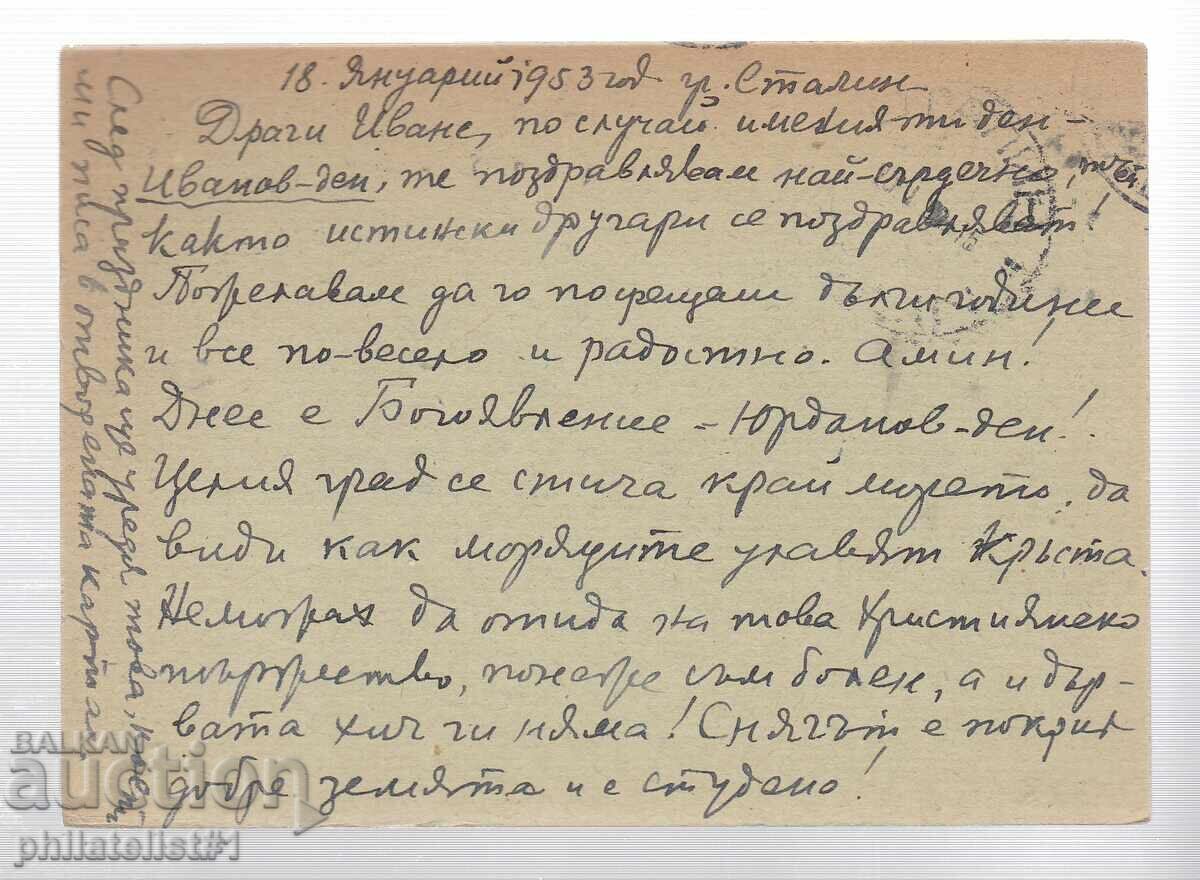 18. Януарий 1953 год гр. Сталин
Драги Иване, по случай имения ти ден -
Иванов-ден, те поздравлявам най-сърдечно, тъй
както истински другари се поздравляват!
Пожелавам да го посрещаш дълги години
и все по-весело и радостно. Амин!
Днес е Богоявление - Юрданов-ден!
Целия град се стича край морето, да
види как моряците улавят Кръста.
Неможах да отида на това Християнско
тържество, понеже съм болен, а и дър-
вата хич ги няма! Снягът е покрил
добре земята и е студено!
След празника ще уредя това, което
ми писа в отворената картичка
BALKAN
auction
philatelist#1